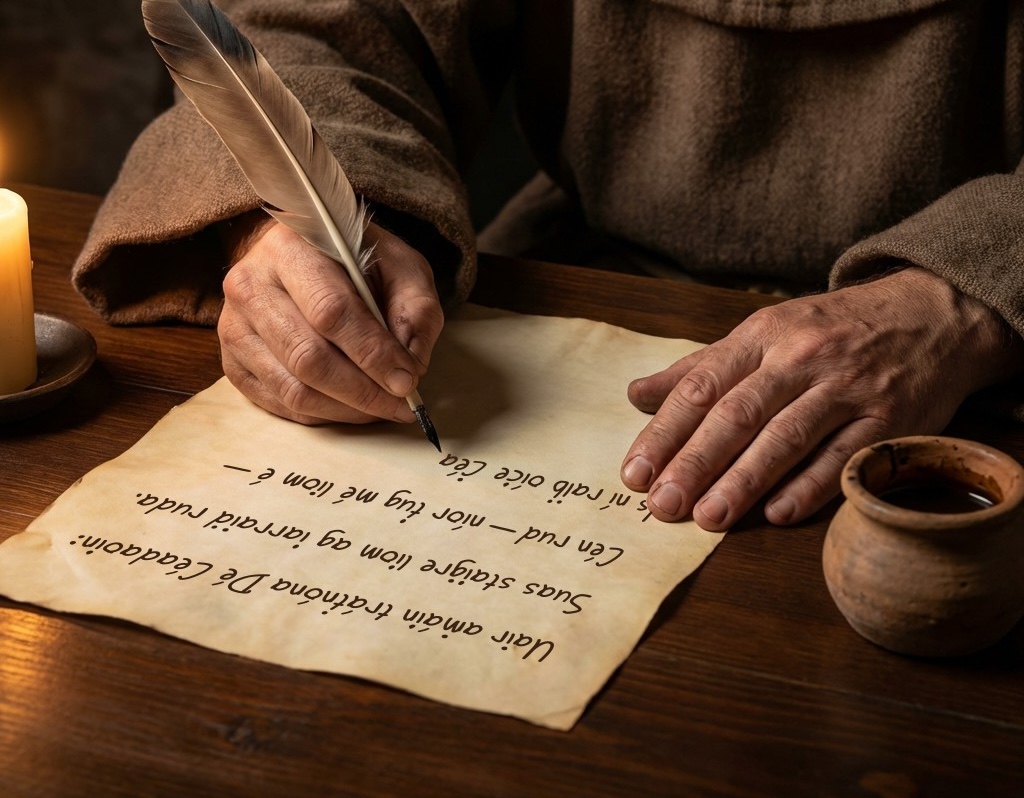 Uair aṁáin tráṫnóna Dé Céadaoin:
Suas staiġre liom ag iarraiḋ ruda.
Cén rud — níor ṫug mé liom é —
Is ní raiḃ oíċe Céa